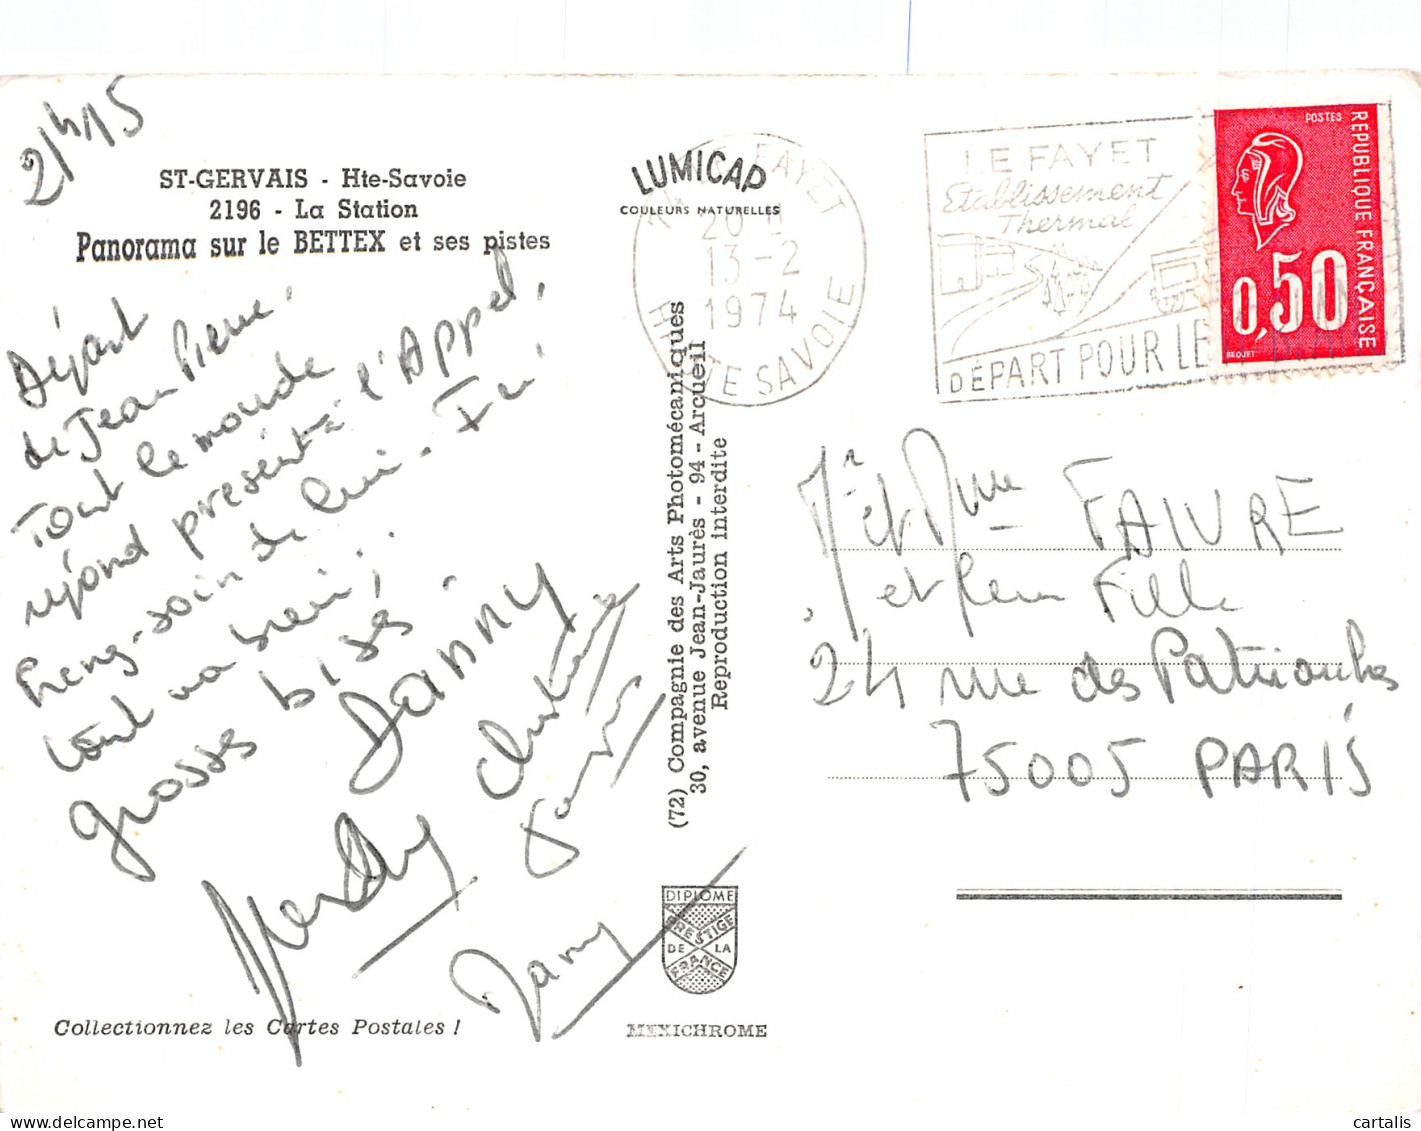 21h15
ST-GERVAIS - Hte-Savoie
2196 - La Station
Panorama sur le BETTEX et ses pistes
Départ
de Jean Pierre.
Tout le monde
répond présent à l'Appel.
Prens-soin de lui. Ici
tout va bien;
grosses bises.
DANNY
Christiane
Dany
Collectionnez les Cartes Postales !
LUMICAP
COULEURS NATURELLES
(72) Compagnie des Arts Photomécaniques
30, avenue Jean-Jaurès - 94 - Arcueil
Reproduction interdite
DIPLOME
PRESTIGE
DE LA
FRANCE
MEXICHROME
FAYET
20 H
13-2
1974
HTE SAVOIE
LE FAYET
Etablissement
Thermal
DÉPART POUR LE
POSTES
REPUBLIQUE FRANÇAISE
0,50
BEQUET
Mr et Mme FAIVRE
et leur Fille
24 rue des Patriarches
75005 PARIS
Delcampe.net
cartalis